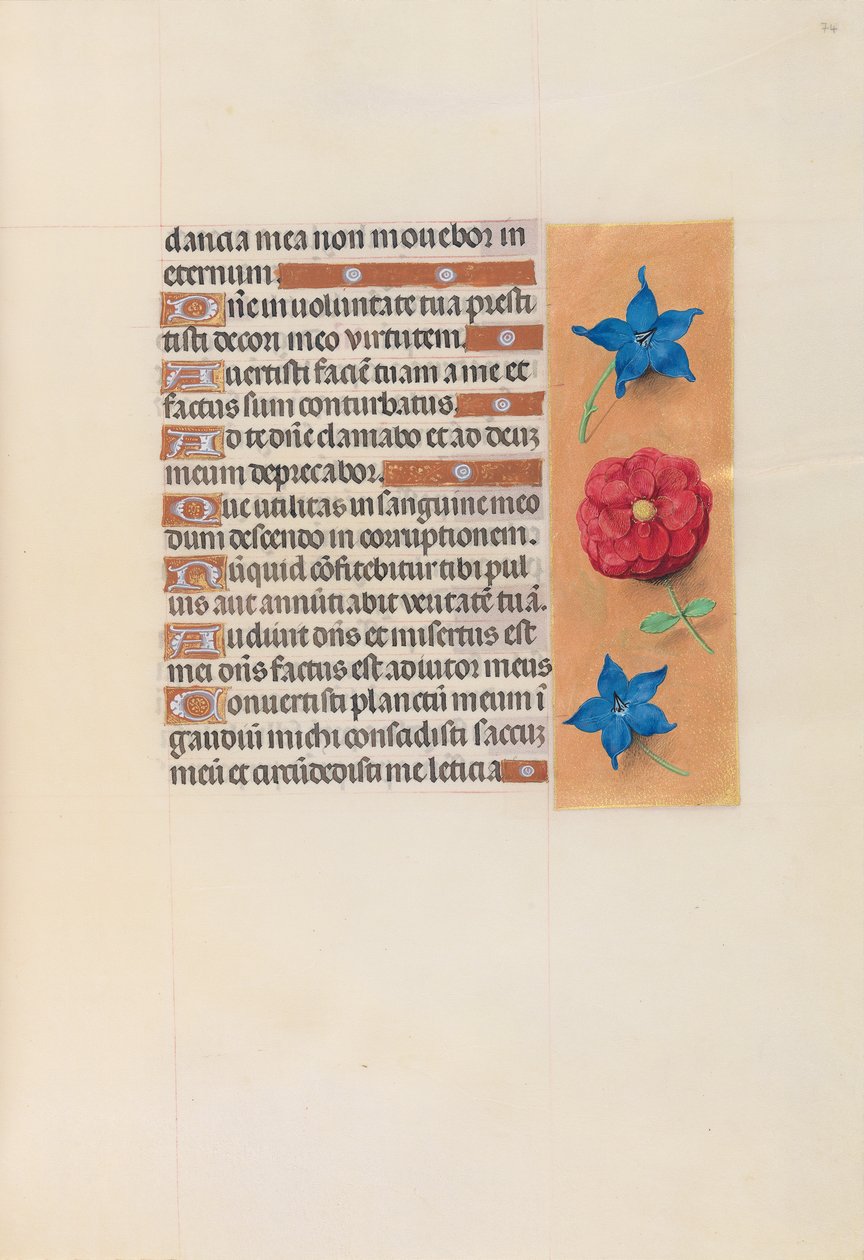 74
dancia mea non mouebor in
eternum.
Dn̄e in uoluntate tua presti
tisti decori meo virtutem.
Auertisti faciē tuam a me et
factus sum conturbatus.
Ad te dn̄e clamabo et ad deuꝫ
meum deprecabor.
Que utilitas in sanguine meo
dum descendo in corruptionem.
Nūquid cōfitebitur tibi pul
uis aut annūtiabit veritatē tuā.
Audiuit dn̄s et misertus est
mei dn̄s factus est adiutor meus
Conuertisti planctū meum ī
gaudiū michi conscidisti saccuꝫ
meū et circūdedisti me leticia